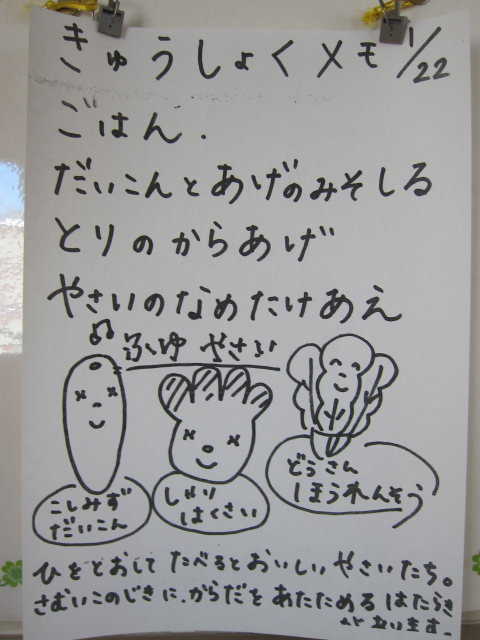 きゅうしょくメモ 1/22
ごはん.
だいこんとあげのみそしる
とりのからあげ
やさいのなめたけあえ
ふゆ やさい
こしみず
だいこん
しゃり
はくさい
どうさん
ほうれんそう
ひをとおして たべるとおいしい やさいたち。
さむいこのじきに、からだを あたためる はたらき
が あいます。